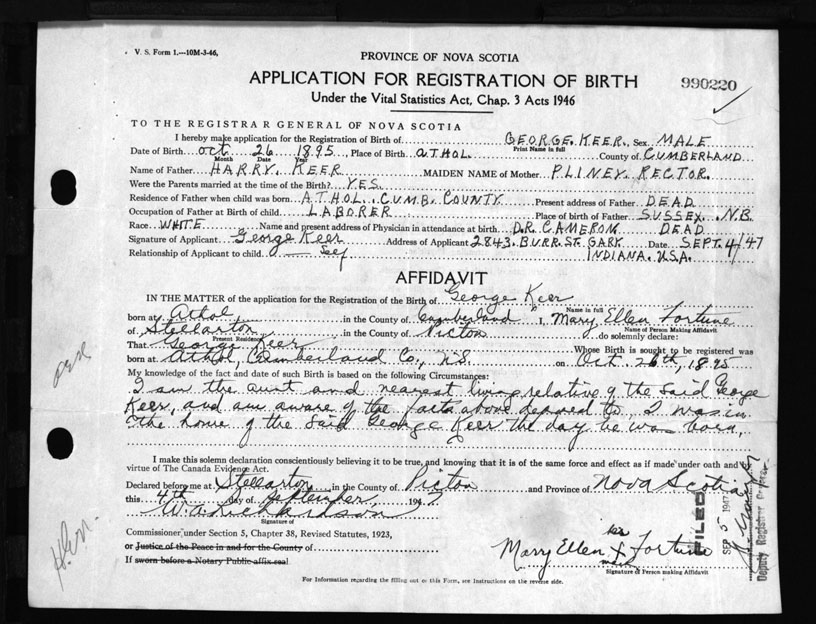 V. S. Form 1.—10M-3-46,
PROVINCE OF NOVA SCOTIA
APPLICATION FOR REGISTRATION OF BIRTH
990220
Under the Vital Statistics Act, Chap. 3 Acts 1946
TO THE REGISTRAR GENERAL OF NOVA SCOTIA
I hereby make application for the Registration of Birth of GEORGE. KEER. Sex MALE
Print Name in full
Date of Birth oct 26 1895 Place of Birth ATHOL. County of CUMBERLAND
Month Date Year
Name of Father HARRY. KEER MAIDEN NAME of Mother PLINEY. RECTOR.
Were the Parents married at the time of the Birth? YES.
Residence of Father when child was born ATHOL. CUMB. COUNTY Present address of Father DEAD
Occupation of Father at Birth of child LABORER Place of birth of Father SUSSEX. N.B.
Race WHITE Name and present address of Physician in attendance at birth D.R. CAMERON DEAD
Signature of Applicant George Keer Address of Applicant 2843. BURR. ST. GARY Date SEPT. 4/47
Relationship of Applicant to child Self INDIANA. U.S.A.
AFFIDAVIT
IN THE MATTER of the application for the Registration of the Birth of George Keer
Name in full
born at Athol, in the County of Cumberland I, Mary Ellen Fortune
Name of Person Making Affidavit
of Stellarton in the County of Pictou do solemnly declare:
Present Residence
That George Keer Whose Birth is sought to be registered was
born at Athol, Cumberland Co., N.S. on Oct. 26th, 1895
My knowledge of the fact and date of such Birth is based on the following Circumstances:
I am the aunt and nearest living relative of the said George
Keer, and am aware of the facts above deposed to. I was in
the home of the said George Keer the day he was born.
I make this solemn declaration conscientiously believing it to be true, and knowing that it is of the same force and effect as if made under oath and by
virtue of The Canada Evidence Act.
Declared before me at Stellarton in the County of Pictou and Province of Nova Scotia
this 4th day of September, 1947
W.A. Richardson
Signature of
Commissioner under Section 5, Chapter 38, Revised Statutes, 1923,
or Justice of the Peace in and for the County of
If sworn before a Notary Public affix seal
her
Mary Ellen X Fortune
mark
Signature of Person making Affidavit
FILED
SEP 5 1947
Deputy Registrar
For Information regarding the filling out of this Form, see Instructions on the reverse side.